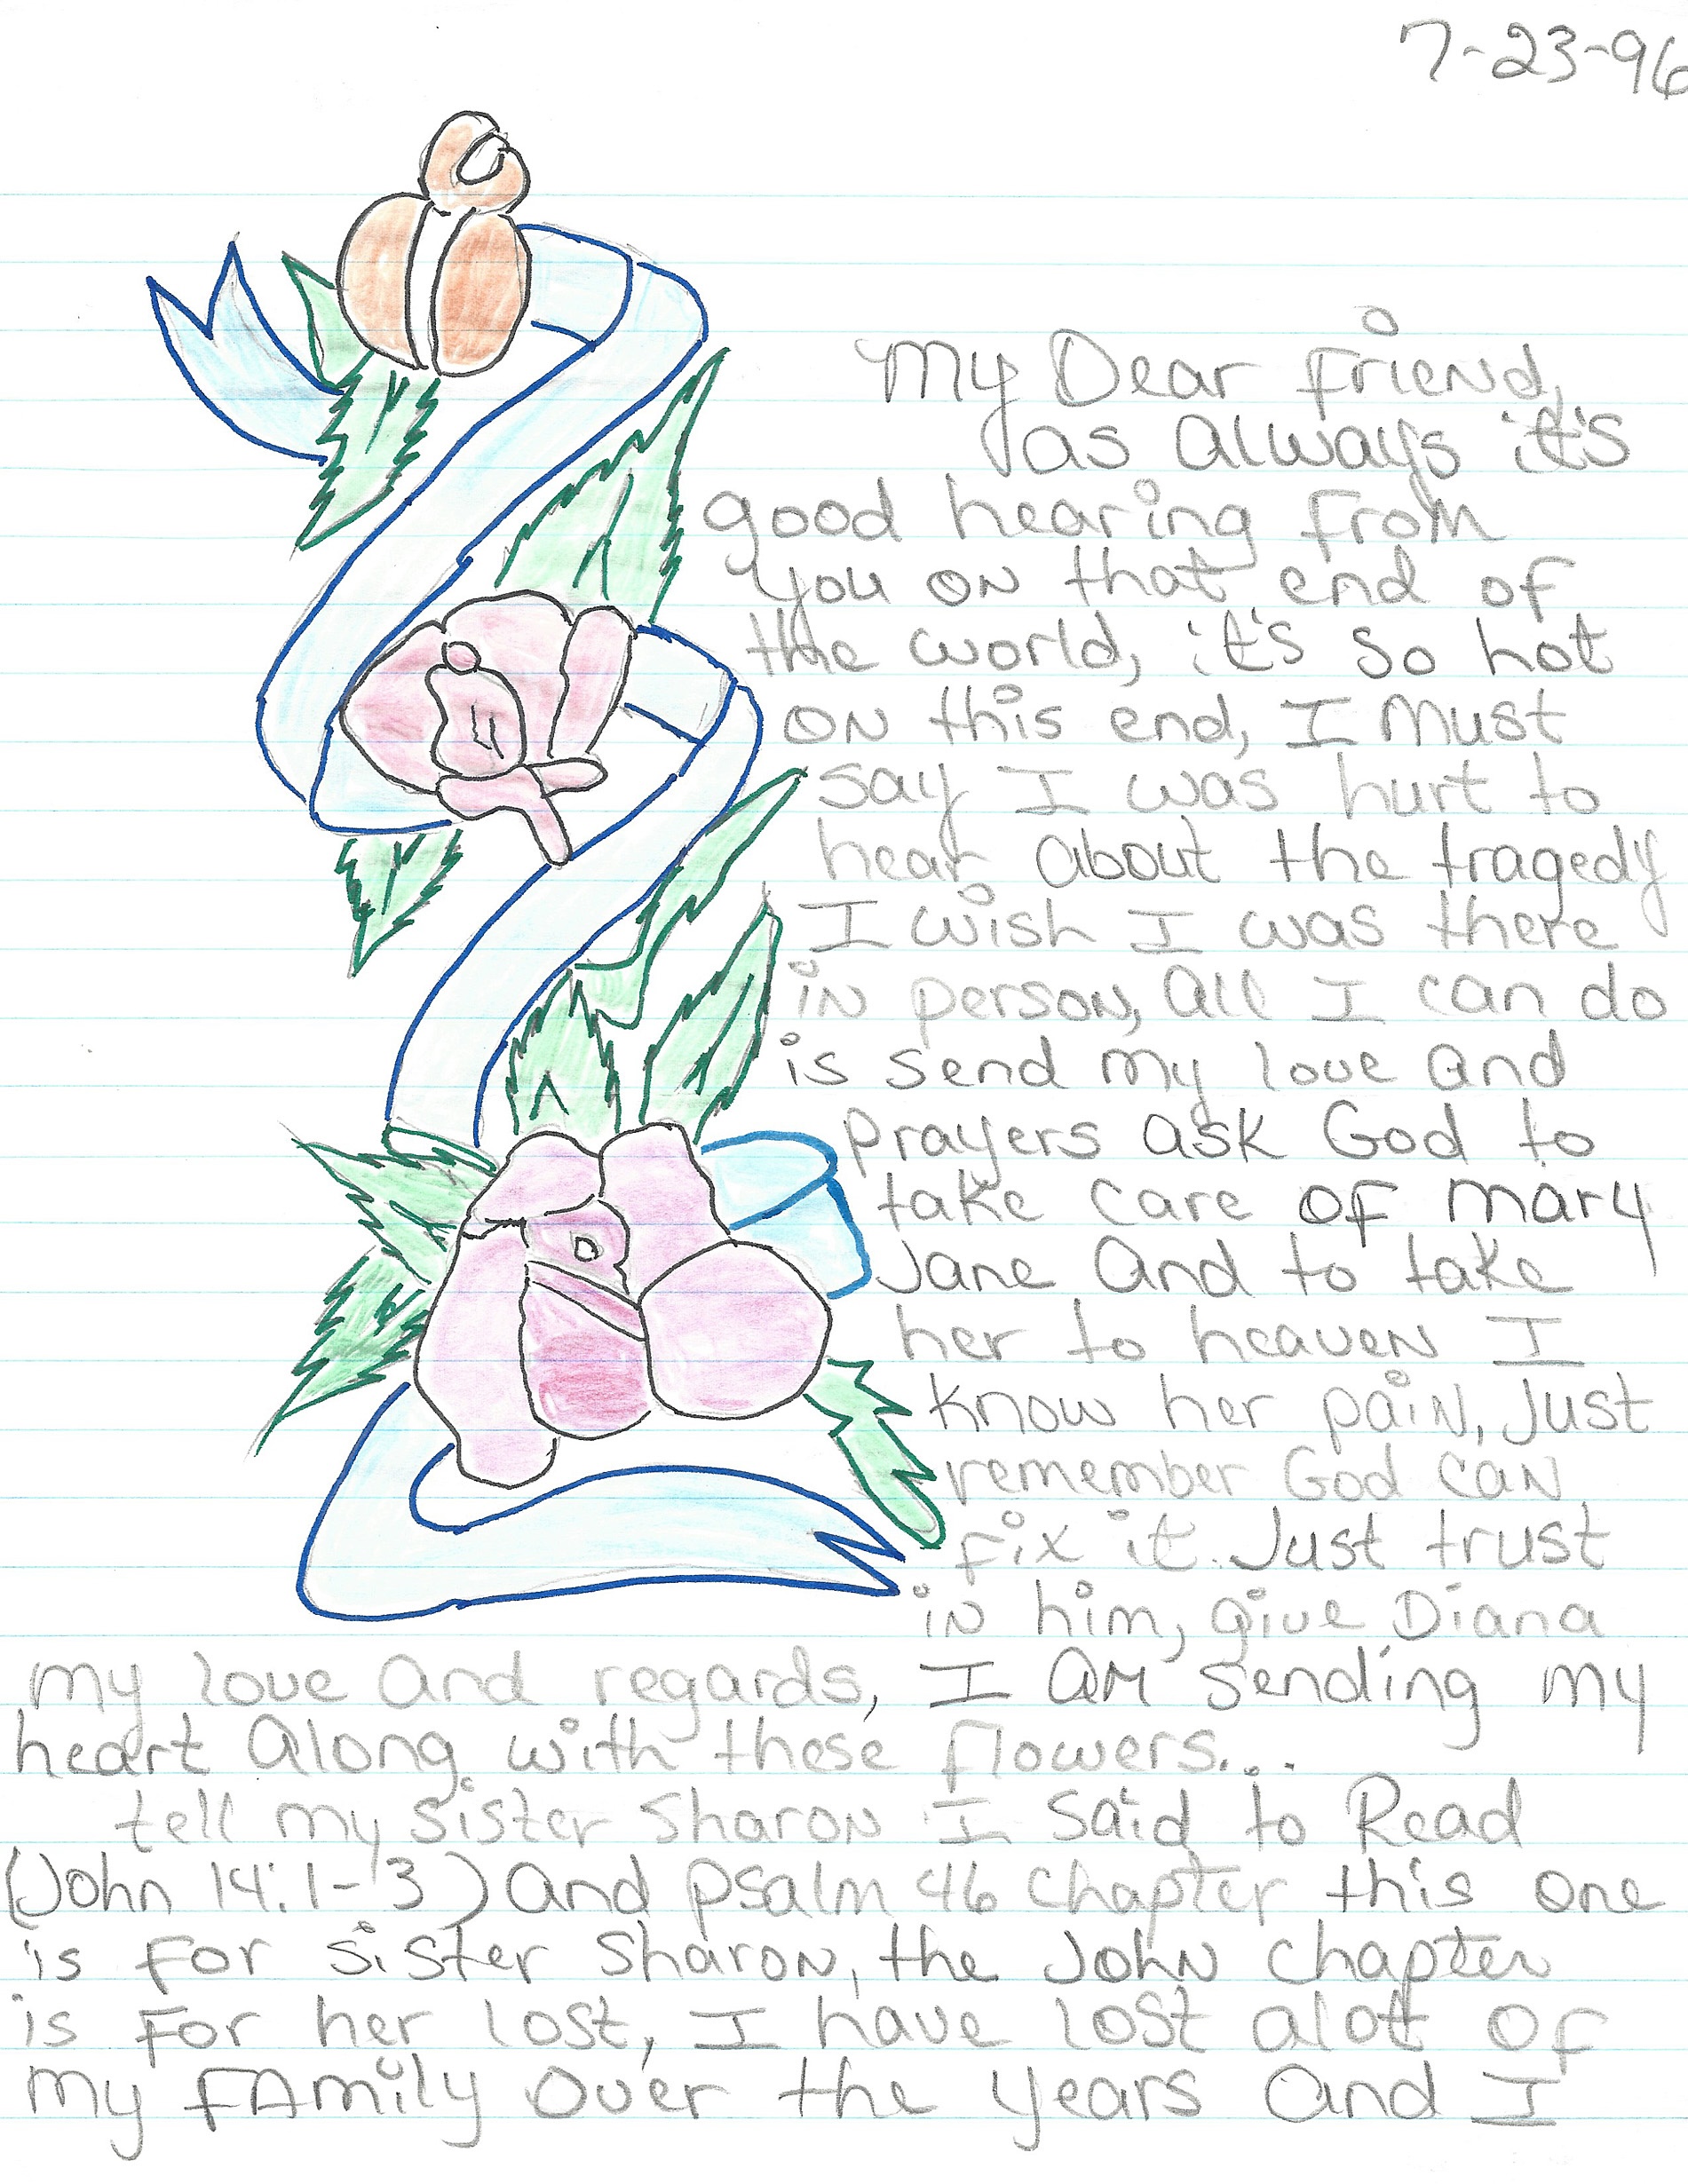 7-23-96
My Dear Friend,
as always it's
good hearing from
you on that end of
the world, it's so hot
on this end, I must
say I was hurt to
hear about the tragedy
I wish I was there
in person, all I can do
is send my love and
prayers ask God to
take care of mary
Jane and to take
her to heaven I
know her pain, Just
remember God can
fix it. Just trust
in him, give Diana
my love and regards, I am sending my
heart along with these flowers...
tell my sister Sharon I said to Read
(John 14:1-3) and psalm 46 chapter this one
is for sister Sharon, the John chapter
is for her lost, I have lost alott of
my family over the years and I